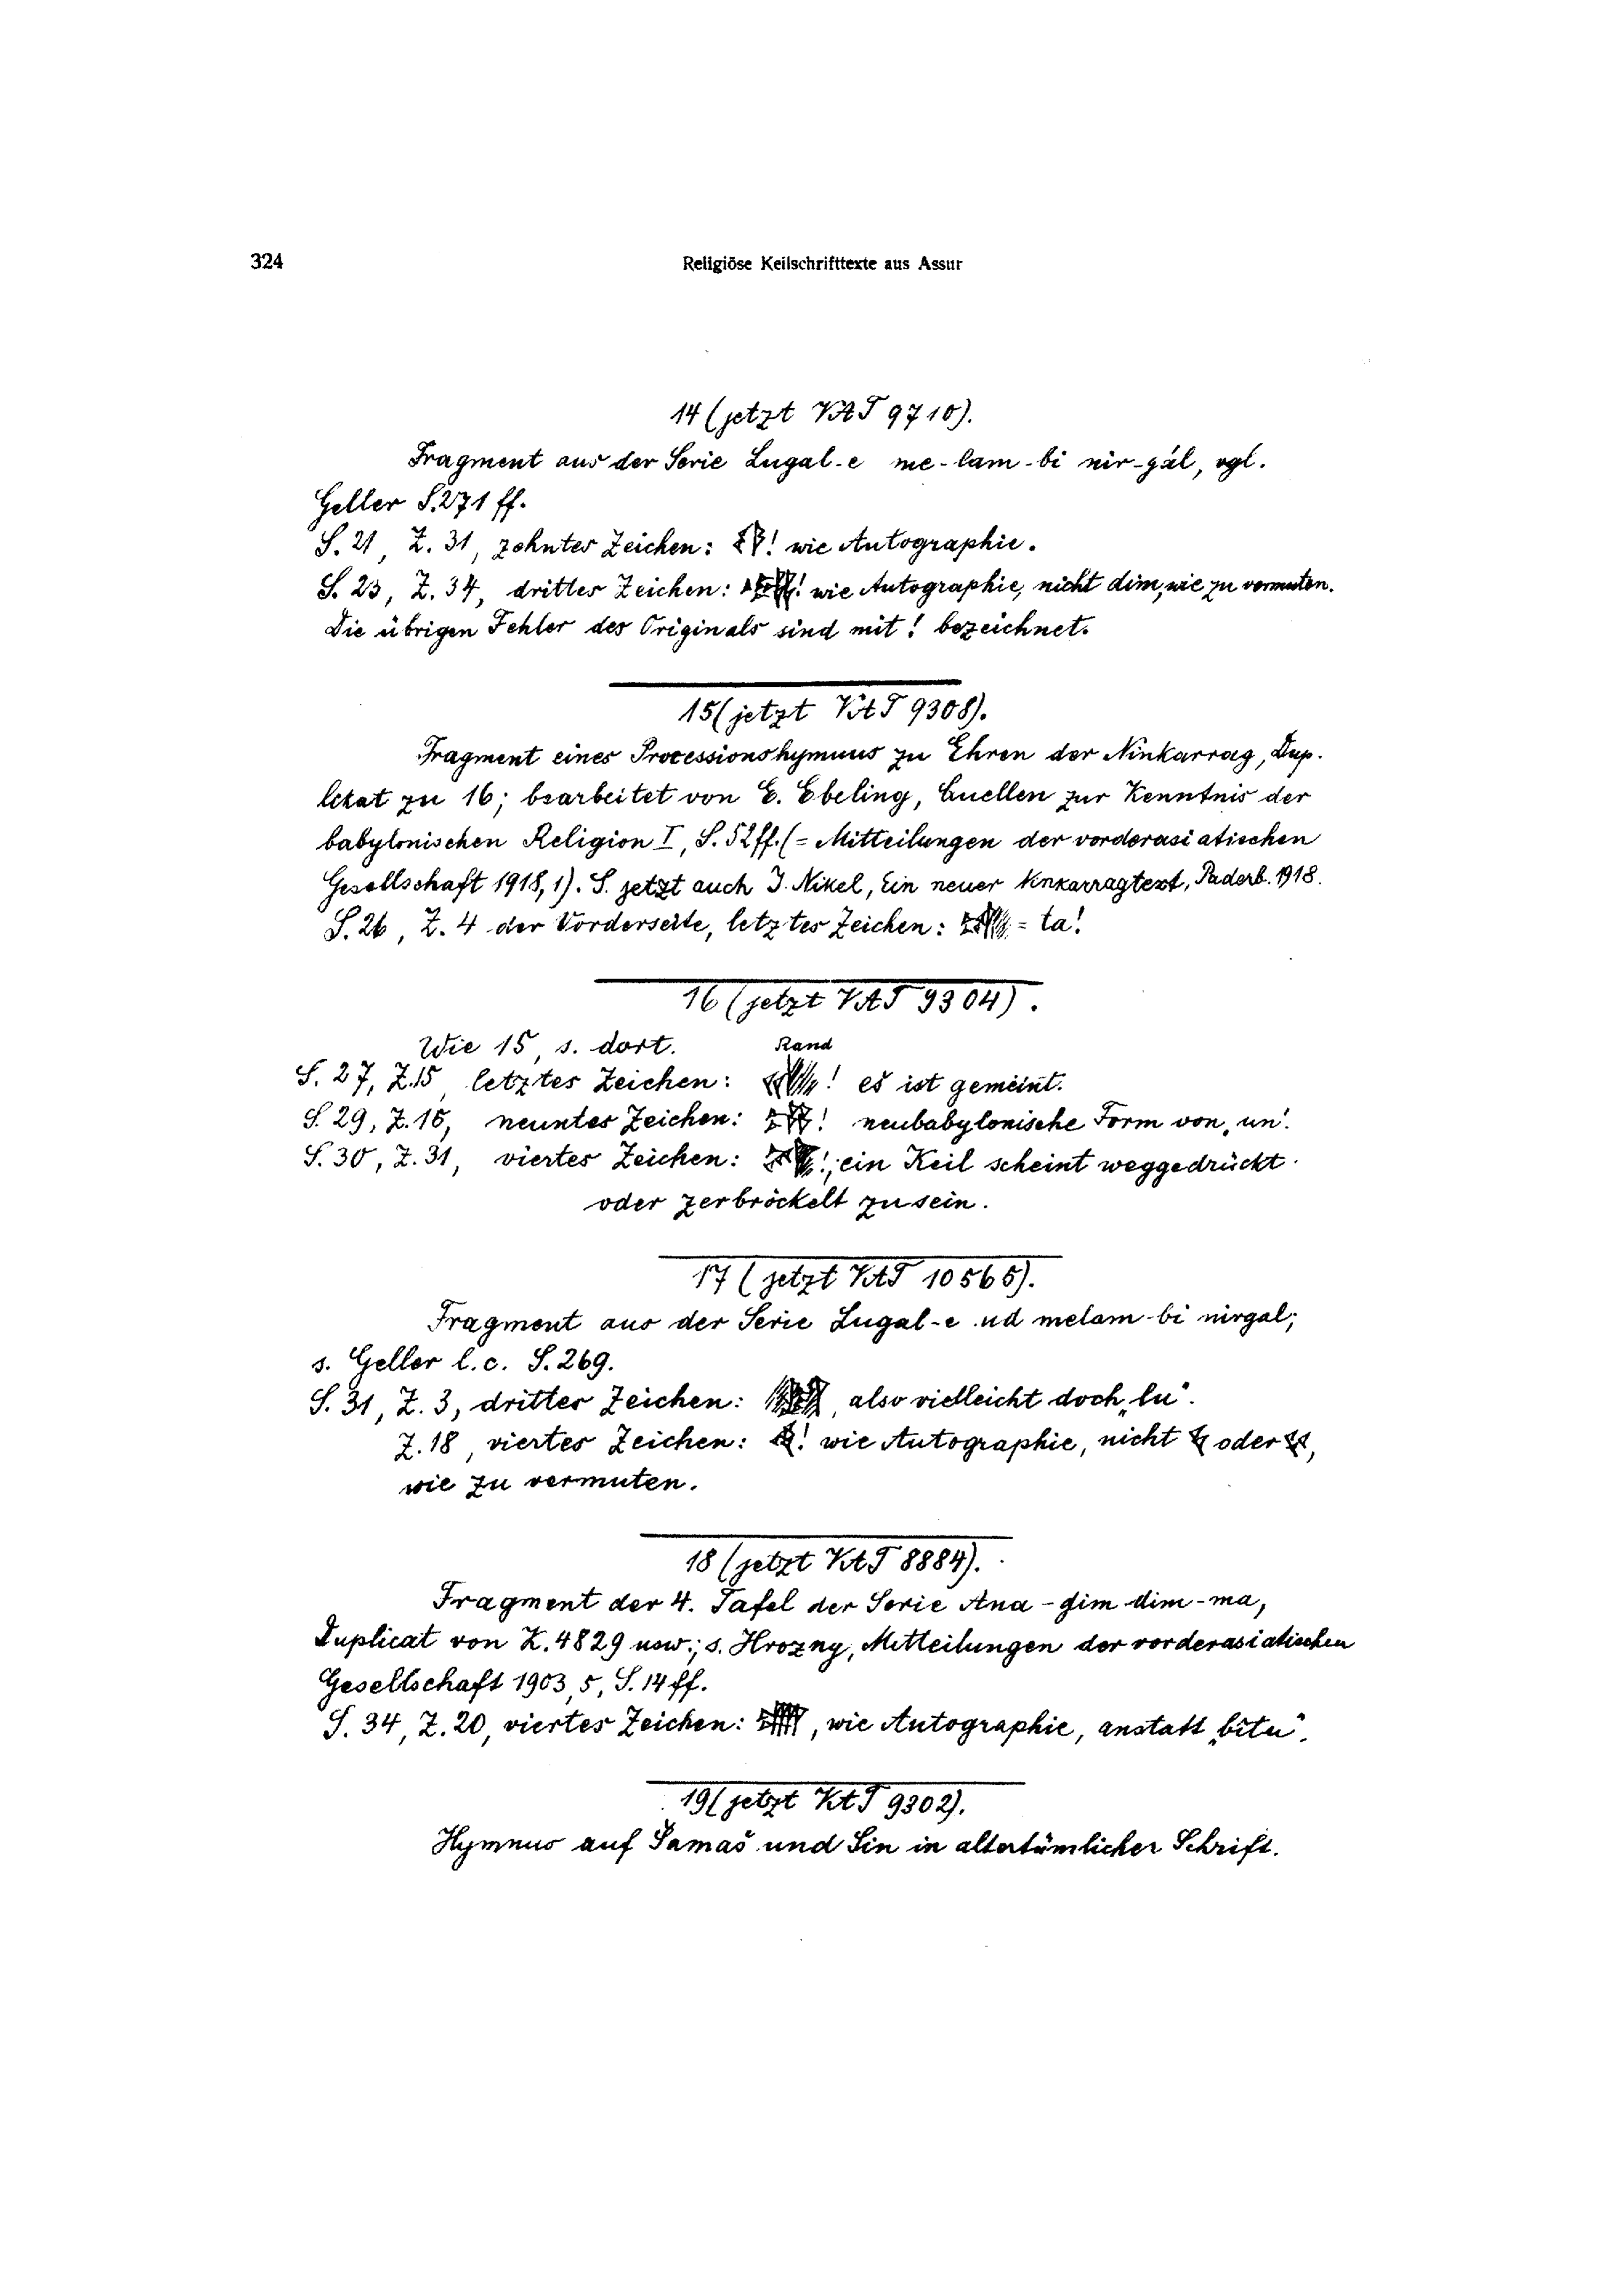 324
Religiöse Keilschrifttexte aus Assur
14 (jetzt VAT 9710).
Fragment aus der Serie Lugal-e me-lam-bi nir-gál, vgl.
Geller S.271 ff.
S. 21, Z. 31, zehntes Zeichen: ! wie Autographie.
S. 23, Z. 34, drittes Zeichen: ! wie Autographie, nicht dim, wie zu vermuten.
Die übrigen Fehler des Originals sind mit ! bezeichnet.
15 (jetzt VAT 9308).
Fragment eines Processionshymnus zu Ehren der Ninkarrag, Dup-
likat zu 16; bearbeitet von E. Ebeling, Quellen zur Kenntnis der
babylonischen Religion I, S. 52ff. (= Mitteilungen der vorderasiatischen
Gesellschaft 1918, 1). S. jetzt auch J. Nikel, Ein neuer Ninkarragtext, Paderb. 1918.
S. 26, Z. 4 der Vorderseite, letztes Zeichen: = ta!
16 (jetzt VAT 9304).
Wie 15, s. dort.
Rand
S. 27, Z.15 letztes Zeichen: ! eš ist gemeint.
S. 29, Z.16, neuntes Zeichen: ! neubabylonische Form von „un“.
S. 30, Z. 31, viertes Zeichen: !; ein Keil scheint weggedrückt
oder zerbröckelt zu sein.
17 (jetzt VAT 10565).
Fragment aus der Serie Lugal-e ud melam-bi nirgal;
s. Geller l.c. S. 269.
S. 31, Z. 3, drittes Zeichen: , also vielleicht doch „lu“.
Z. 18, viertes Zeichen: ! wie Autographie, nicht oder ,
wie zu vermuten.
18 (jetzt VAT 8884).
Fragment der 4. Tafel der Serie Ana-gim dim-ma,
Duplicat von K. 4829 usw.; s. Hrozny, Mitteilungen der vorderasiatischen
Gesellschaft 1903, 5, S. 14 ff.
S. 34, Z. 20, viertes Zeichen: , wie Autographie, anstatt „bîtu“.
19 (jetzt VAT 9302).
Hymnus auf Šamaš und Sin in altertümlicher Schrift.